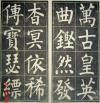 萬古皇英
曲鏗然發
杳冥依稀
傳寶瑟縹